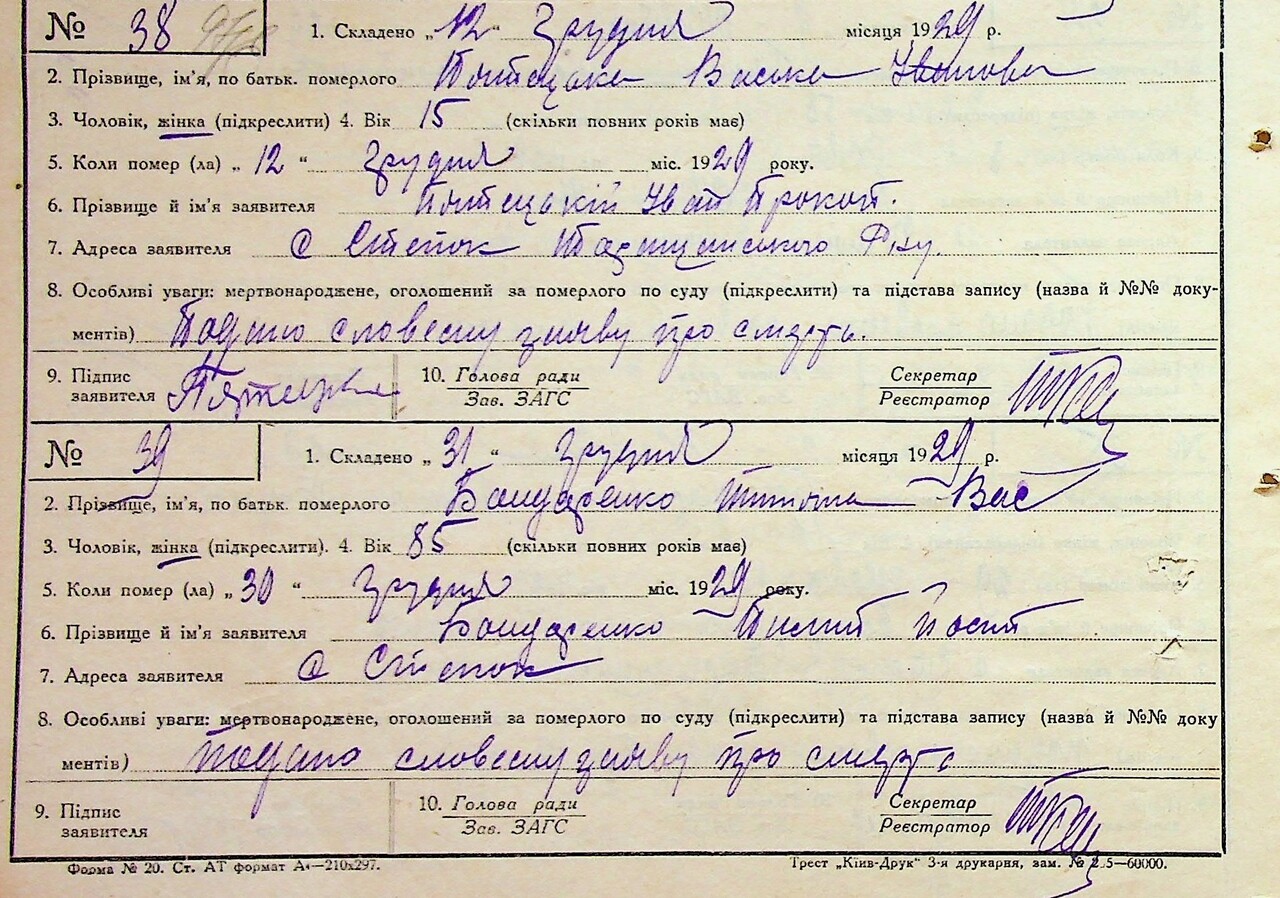 № 38 1. Складено „12“ Грудня місяця 1929 р.
2. Прізвище, ім'я, по батьк. померлого Васька Іванова
3. Чоловік, жінка (підкреслити) 4. Вік 15 (скільки повних років має)
5. Коли помер (ла) „12“ Грудня міс. 1929 року.
6. Прізвище й ім'я заявителя Іван Прокоп.
7. Адреса заявителя С Степок Таращанського Р-ну.
8. Особливі уваги: мертвонароджене, оголошений за померлого по суду (підкреслити) та підстава запису (назва й №№ доку-
ментів) Подано словесну заяву про смерть.
9. Підпис 10. Голова ради Секретар
заявителя Зав. ЗАГС Реєстратор
№ 39 1. Складено „31“ Грудня місяця 1929 р.
2. Прізвище, ім'я, по батьк. померлого Бондаренко Вас
3. Чоловік, жінка (підкреслити). 4. Вік 85 (скільки повних років має)
5. Коли помер (ла) „30“ Грудня міс. 1929 року.
6. Прізвище й ім'я заявителя Бондаренко Пилип Йосип
7. Адреса заявителя С Степок
8. Особливі уваги: мертвонароджене, оголошений за померлого по суду (підкреслити) та підстава запису (назва й №№ доку
ментів) Подано словесну заяву про смерть
9. Підпис 10. Голова ради Секретар
заявителя Зав. ЗАГС Реєстратор
Форма № 20. Ст. АТ формат А₄—210x297. Трест „Київ-Друк“ 3-я друкарня, зам. №